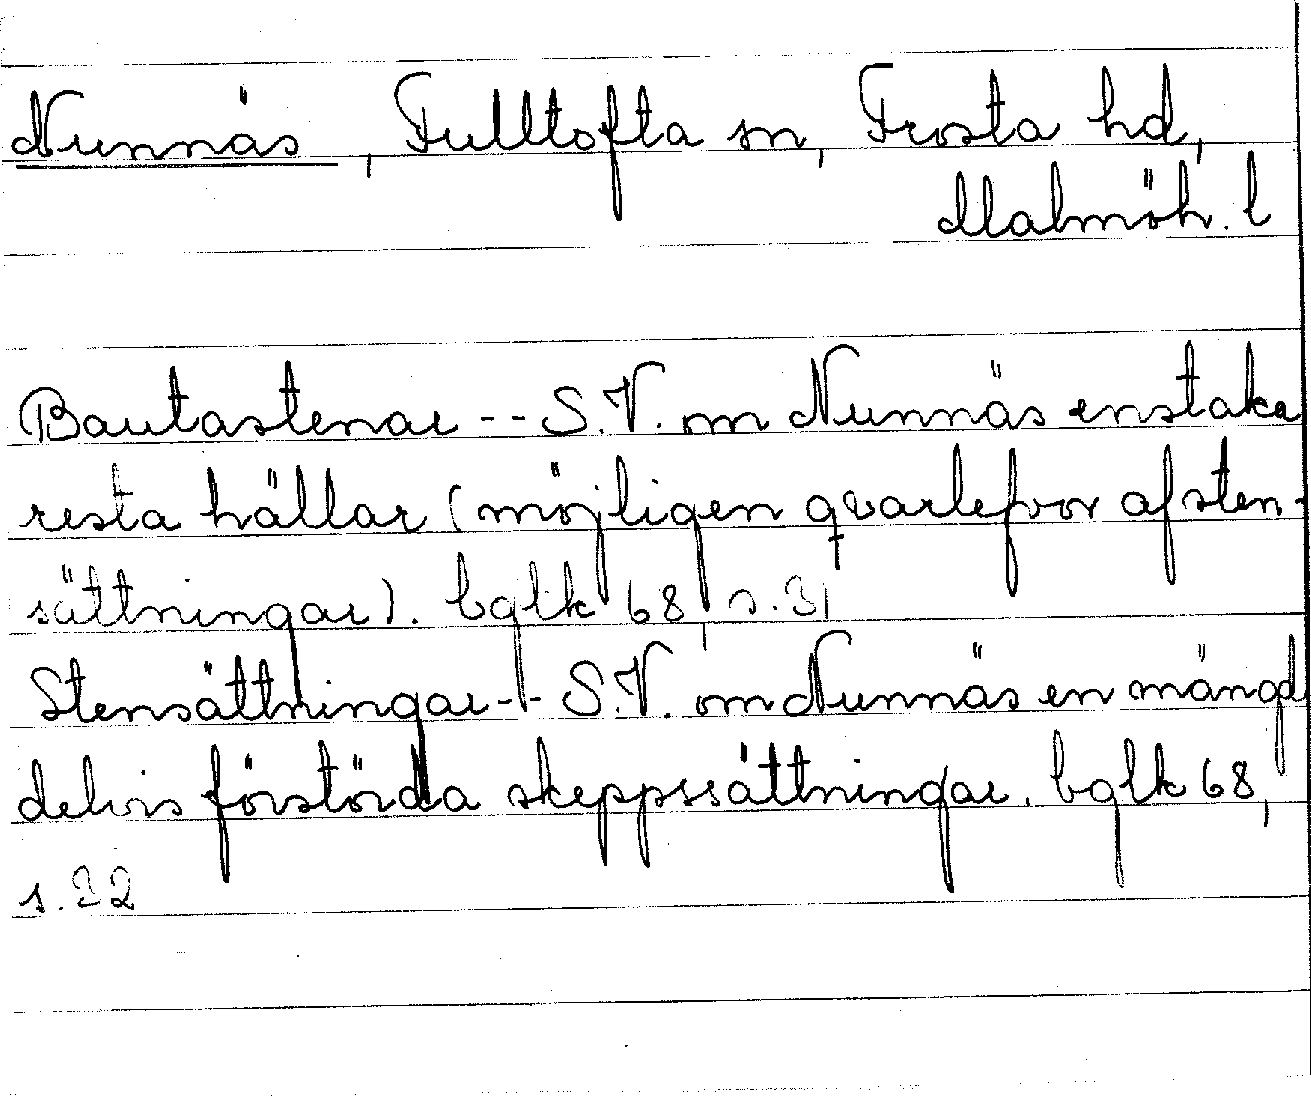 Nunnäs, Fulltofta sn, Frosta hd,
Malmöh. l
Bautastenar -- S.V. om Nunnäs enstaka
resta hällar (möjligen qvarlefvor af sten-
sättningar). bglk 68, s. 31
Stensättningar -- S.V. om Nunnäs en mängd
delvis förstörda skeppssättningar. bglk 68,
s. 32